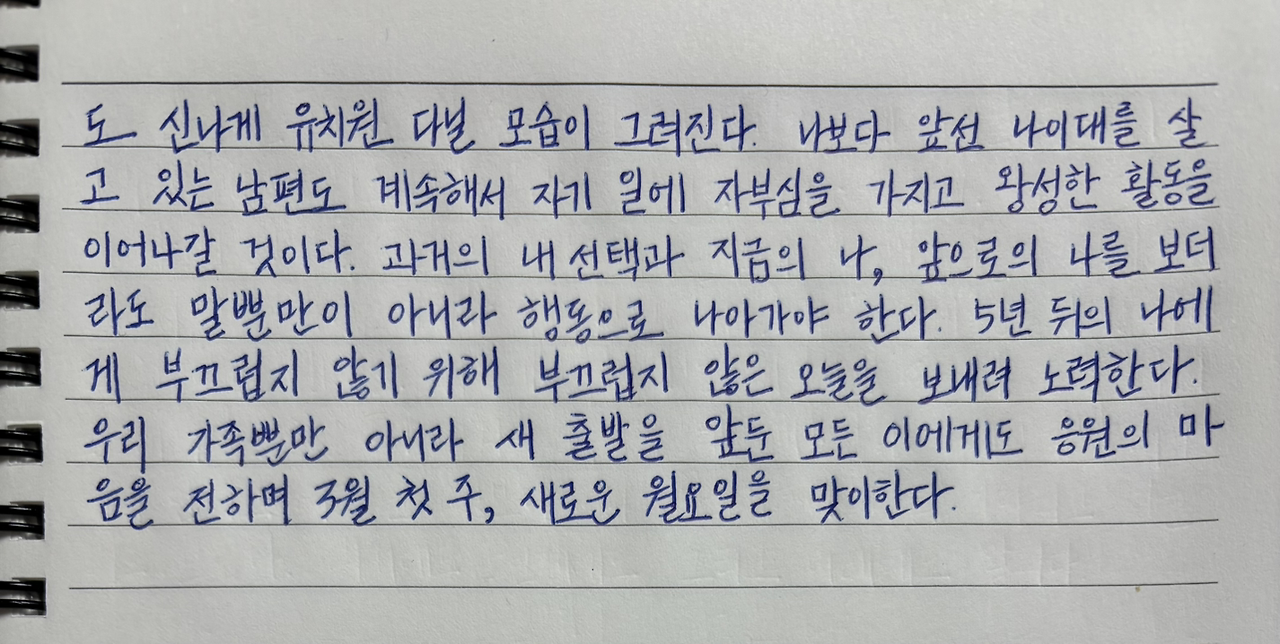 도 신나게 유치원 다닐 모습이 그려진다. 나보다 앞선 나이대를 살
고 있는 남편도 계속해서 자기 일에 자부심을 가지고 왕성한 활동을
이어나갈 것이다. 과거의 내 선택과 지금의 나, 앞으로의 나를 보더
라도 말뿐만이 아니라 행동으로 나아가야 한다. 5년 뒤의 나에
게 부끄럽지 않기 위해 부끄럽지 않은 오늘을 보내려 노력한다.
우리 가족뿐만 아니라 새 출발을 앞둔 모든 이에게도 응원의 마
음을 전하며 3월 첫 주, 새로운 월요일을 맞이한다.